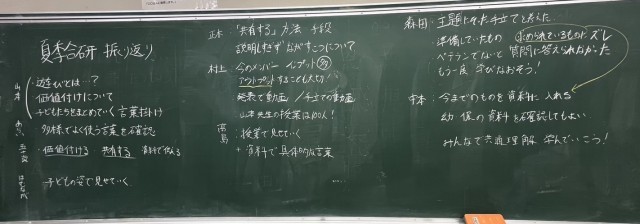 夏季合研 振り返り
山本
・遊びとは…?
価値付けについて
子どもたちをまとめていく言葉掛け
多様でよく使う言葉を確認
・価値付ける 共有する 資料で伝える
子どもの姿で見せていく
正木
「共有する」方法 手段
説明しすぎず なげすこについて
村上
今のメンバー インプット 多
アウトプットすることも大切!
発表で動画 / 手立ての動画
山本先生の授業は100人!
高島
・授業で見せていく
+ 資料で具体的な言葉
森田
主題にそった手立てを考えた
準備していたもの 求められているものに ズレ
ベテランでないと 質問に答えられなかった
もう一度 学びなおそう!
中本
今までのものを資料に入れる
幼保の資料を確認してもよい
みんなで共通理解 学んでいこう!